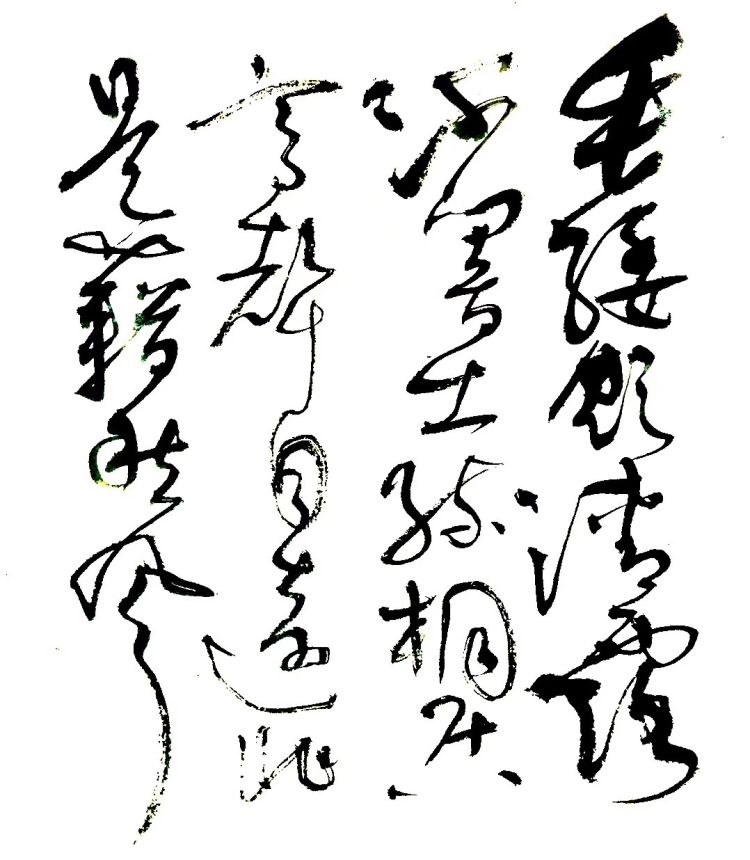 垂緌飲清露
流響出疏桐居
高聲自遠非
是藉秋風